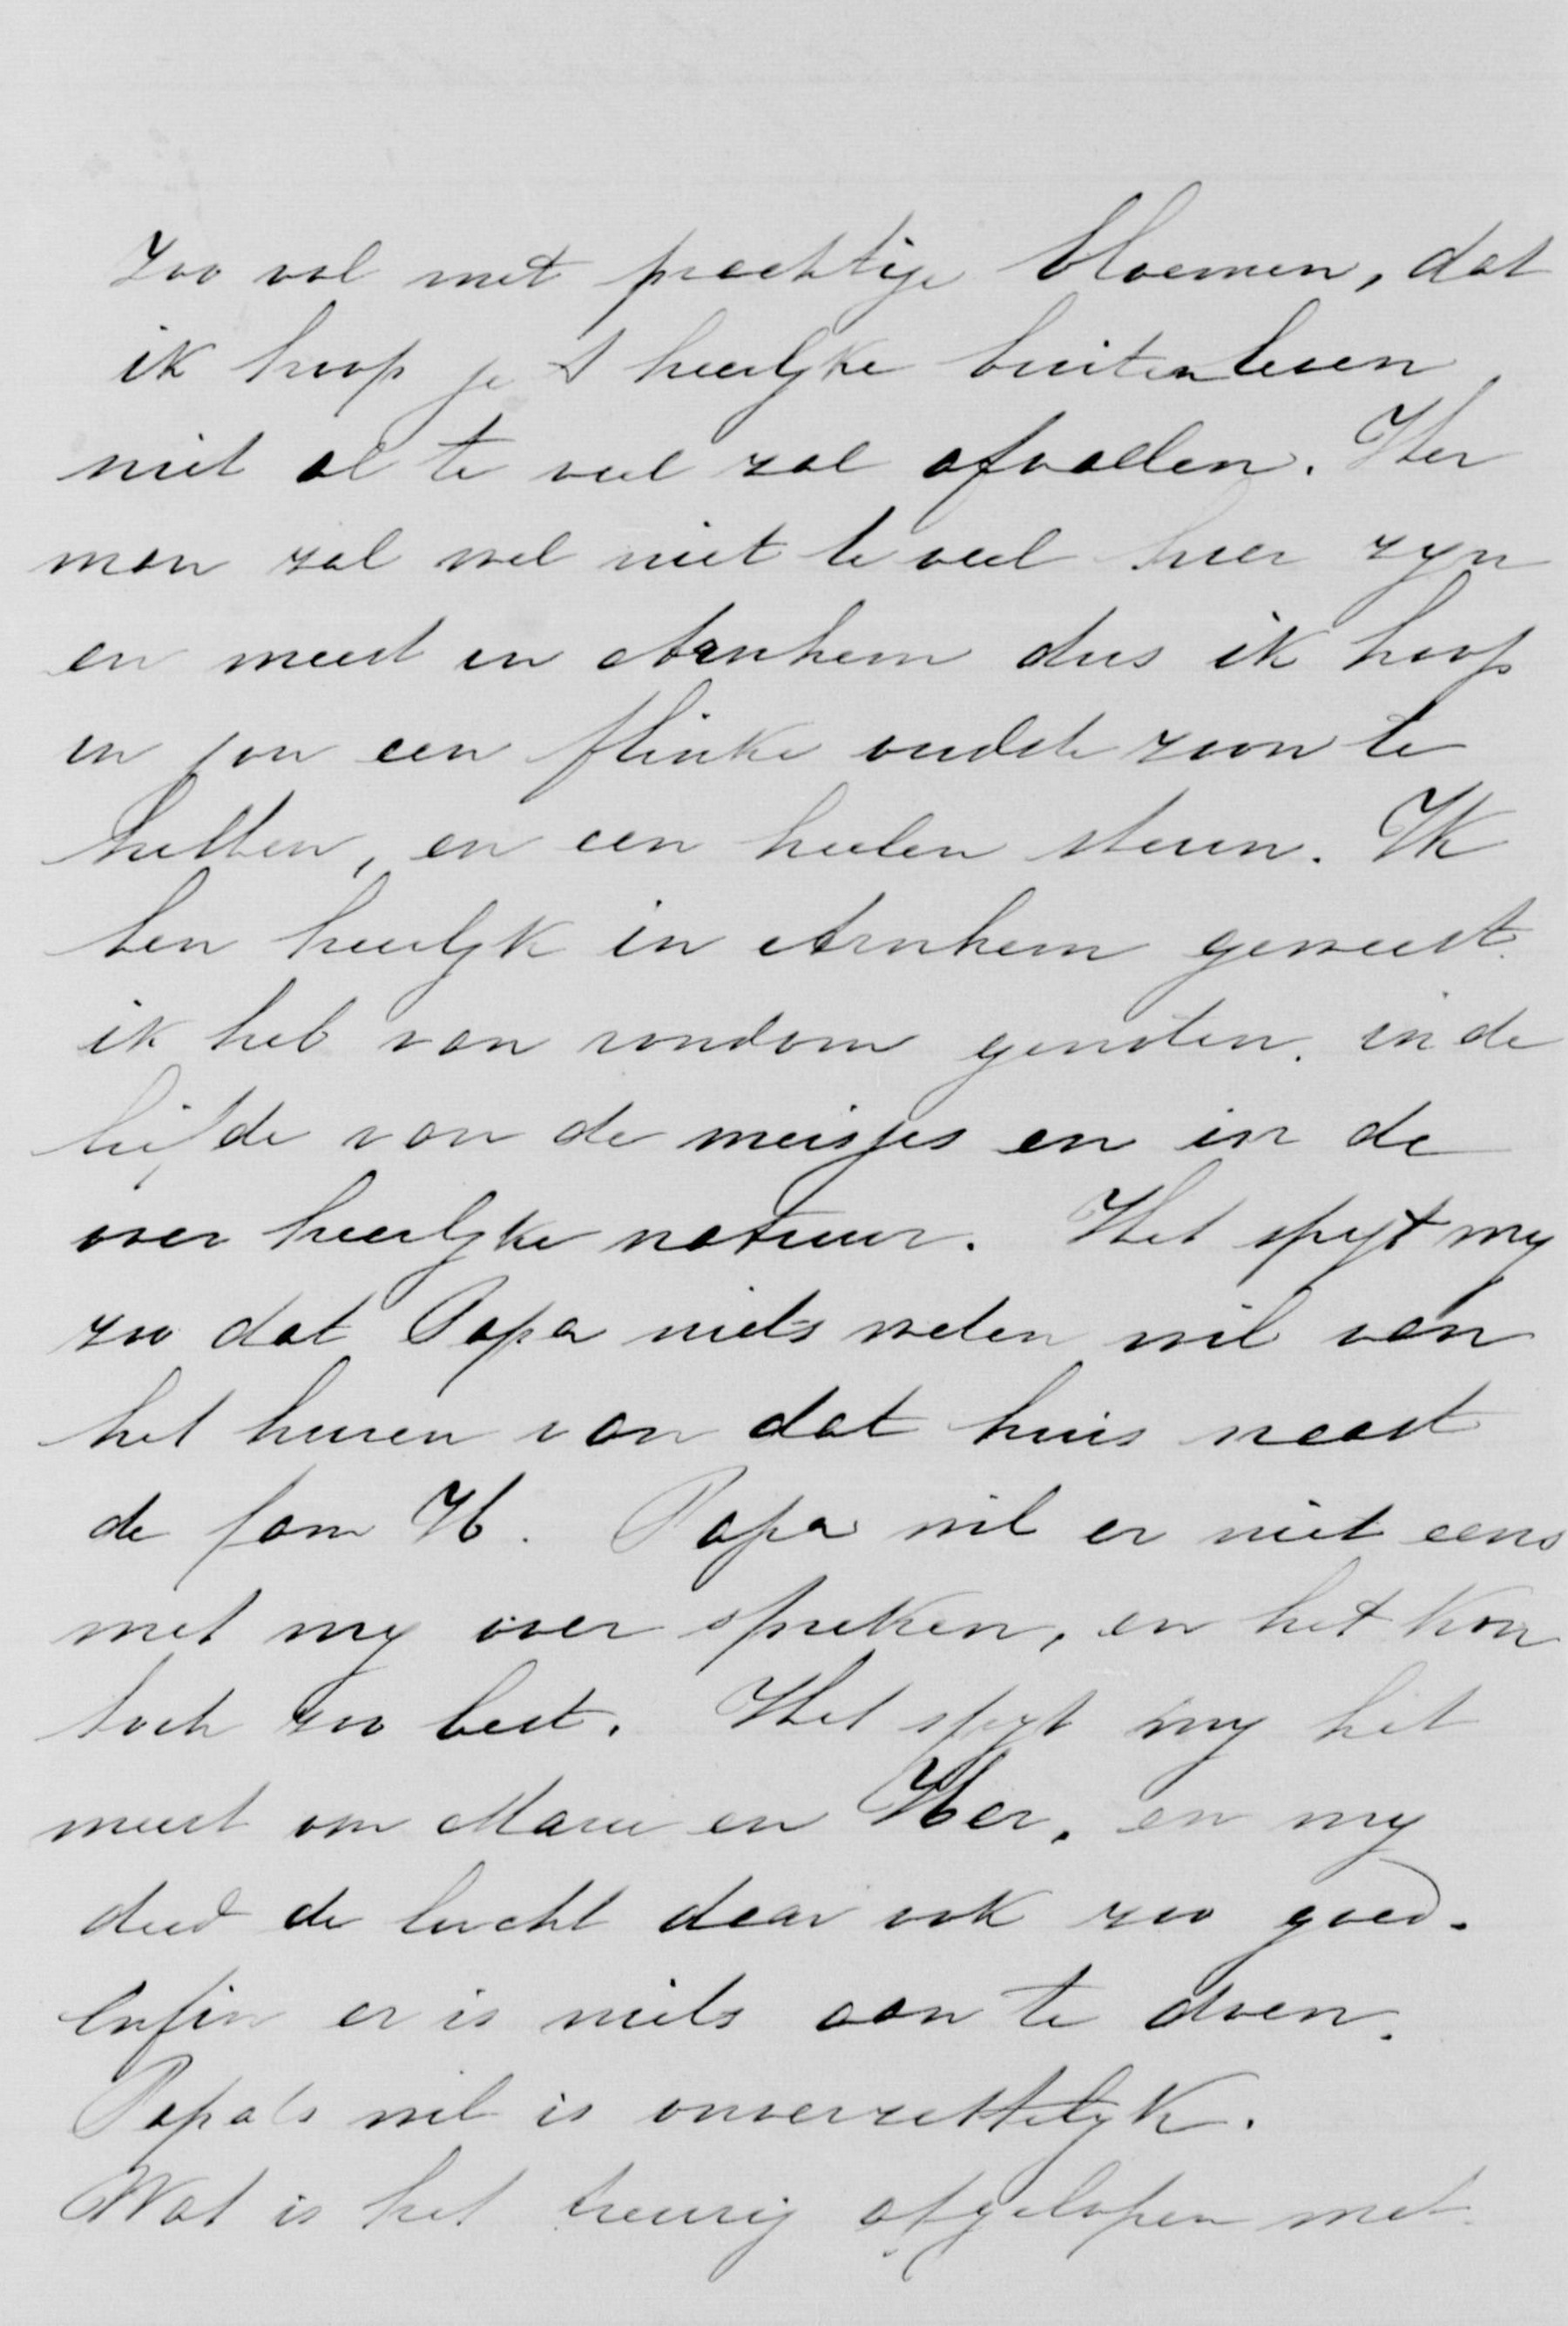 zoo vol met prachtige bloemen, dat
ik hoop je 't heerlyke buitenleven
niet al te veel zal afvallen. Her
man zal wel niet te veel hier zyn
en meest in Arnhem dus ik hoop
in jou een flinke oudste zoon te
hebben, en een heelen steun. Ik
ben heerlyk in Arnhem geweest.
ik heb van rondom genoten. in de
liefde van de meisjes en in de
over heerlyke natuur. Het spyt my
zoo dat Papa niets weten wil van
het huren van dat huis naast
de fam H. Papa wil er niet eens
met my over spreken, en het kon
toch zoo best. Het spyt my het
meest om Marie en Her, en my
deed de lucht daar ook zoo goed.
Enfin er is niets aan te doen.
Papa's wil is onverzettelyk.
Wat is het treurig afgelopen met